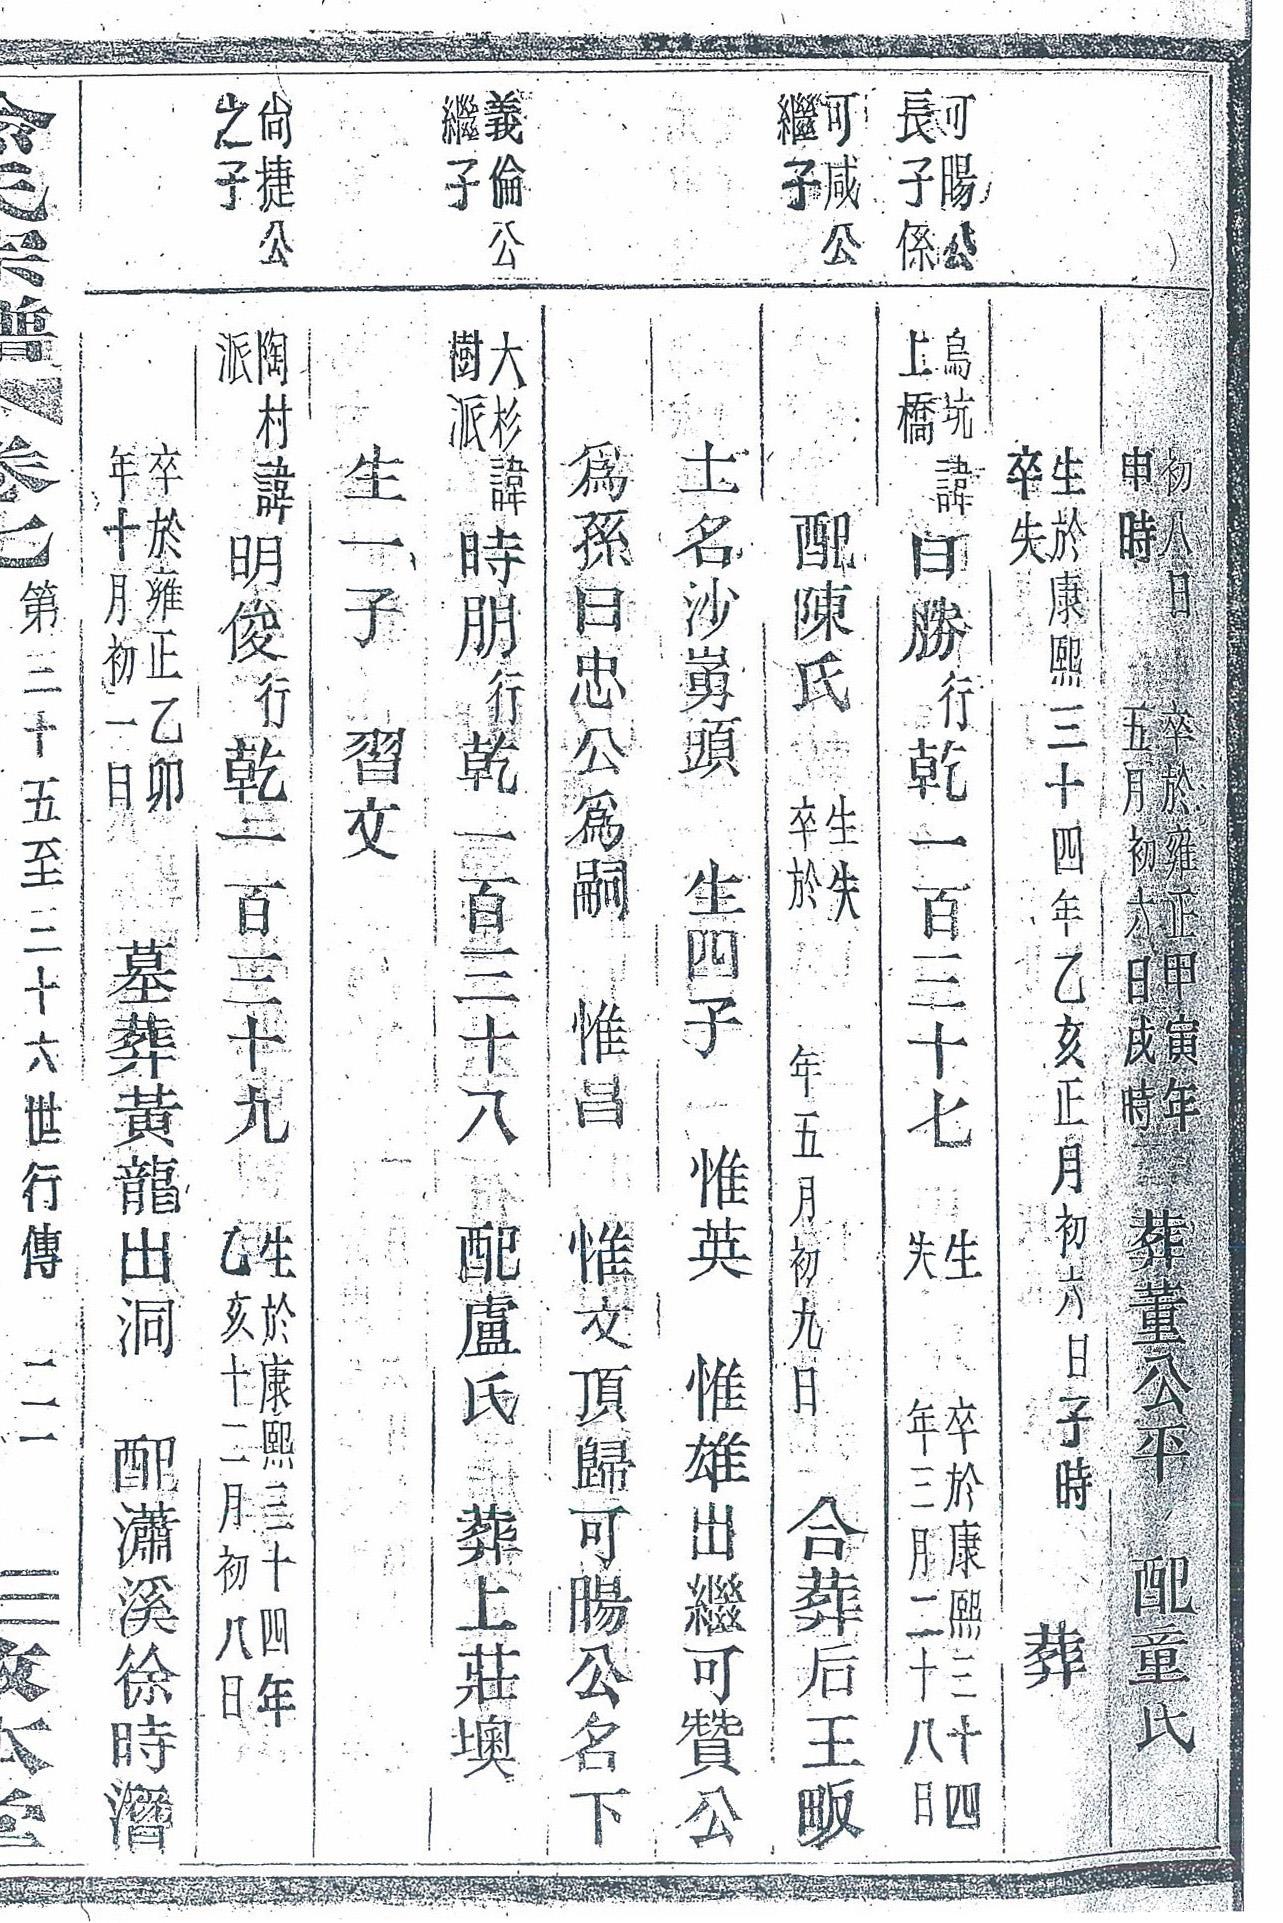 初八日
申時
卒於雍正甲寅年
五月初六日戌時
葬董公平 配童氏
生於康熙三十四年乙亥正月初六日子時
卒失
葬
可暘公
長子係
烏坑
上橋
諱曰勝行乾一百三十七
生
失
卒於康熙三十四
年三月二十八日
可咸公
繼子
配陳氏
生失
卒於 年五月初九日
合葬后王畈
士名沙嵛頭 生四子 惟英 惟雄出繼可贊公
爲孫曰忠公爲嗣 惟昌 惟文頂歸可暘公名下
義倫公
繼子
大杉
樹派
諱時朋行乾一百三十八 配盧氏 葬上莊墺
生一子 習文
尙捷公
之子
陶村
派
諱明俊行乾一百三十九
生於康熙三十四年
乙亥十二月初八日
卒於雍正乙卯
年十月初一日
墓葬黃龍出洞 配瀟溪徐時潛
氏宗譜 卷七 第二十五至二十六世行傳 敦本堂